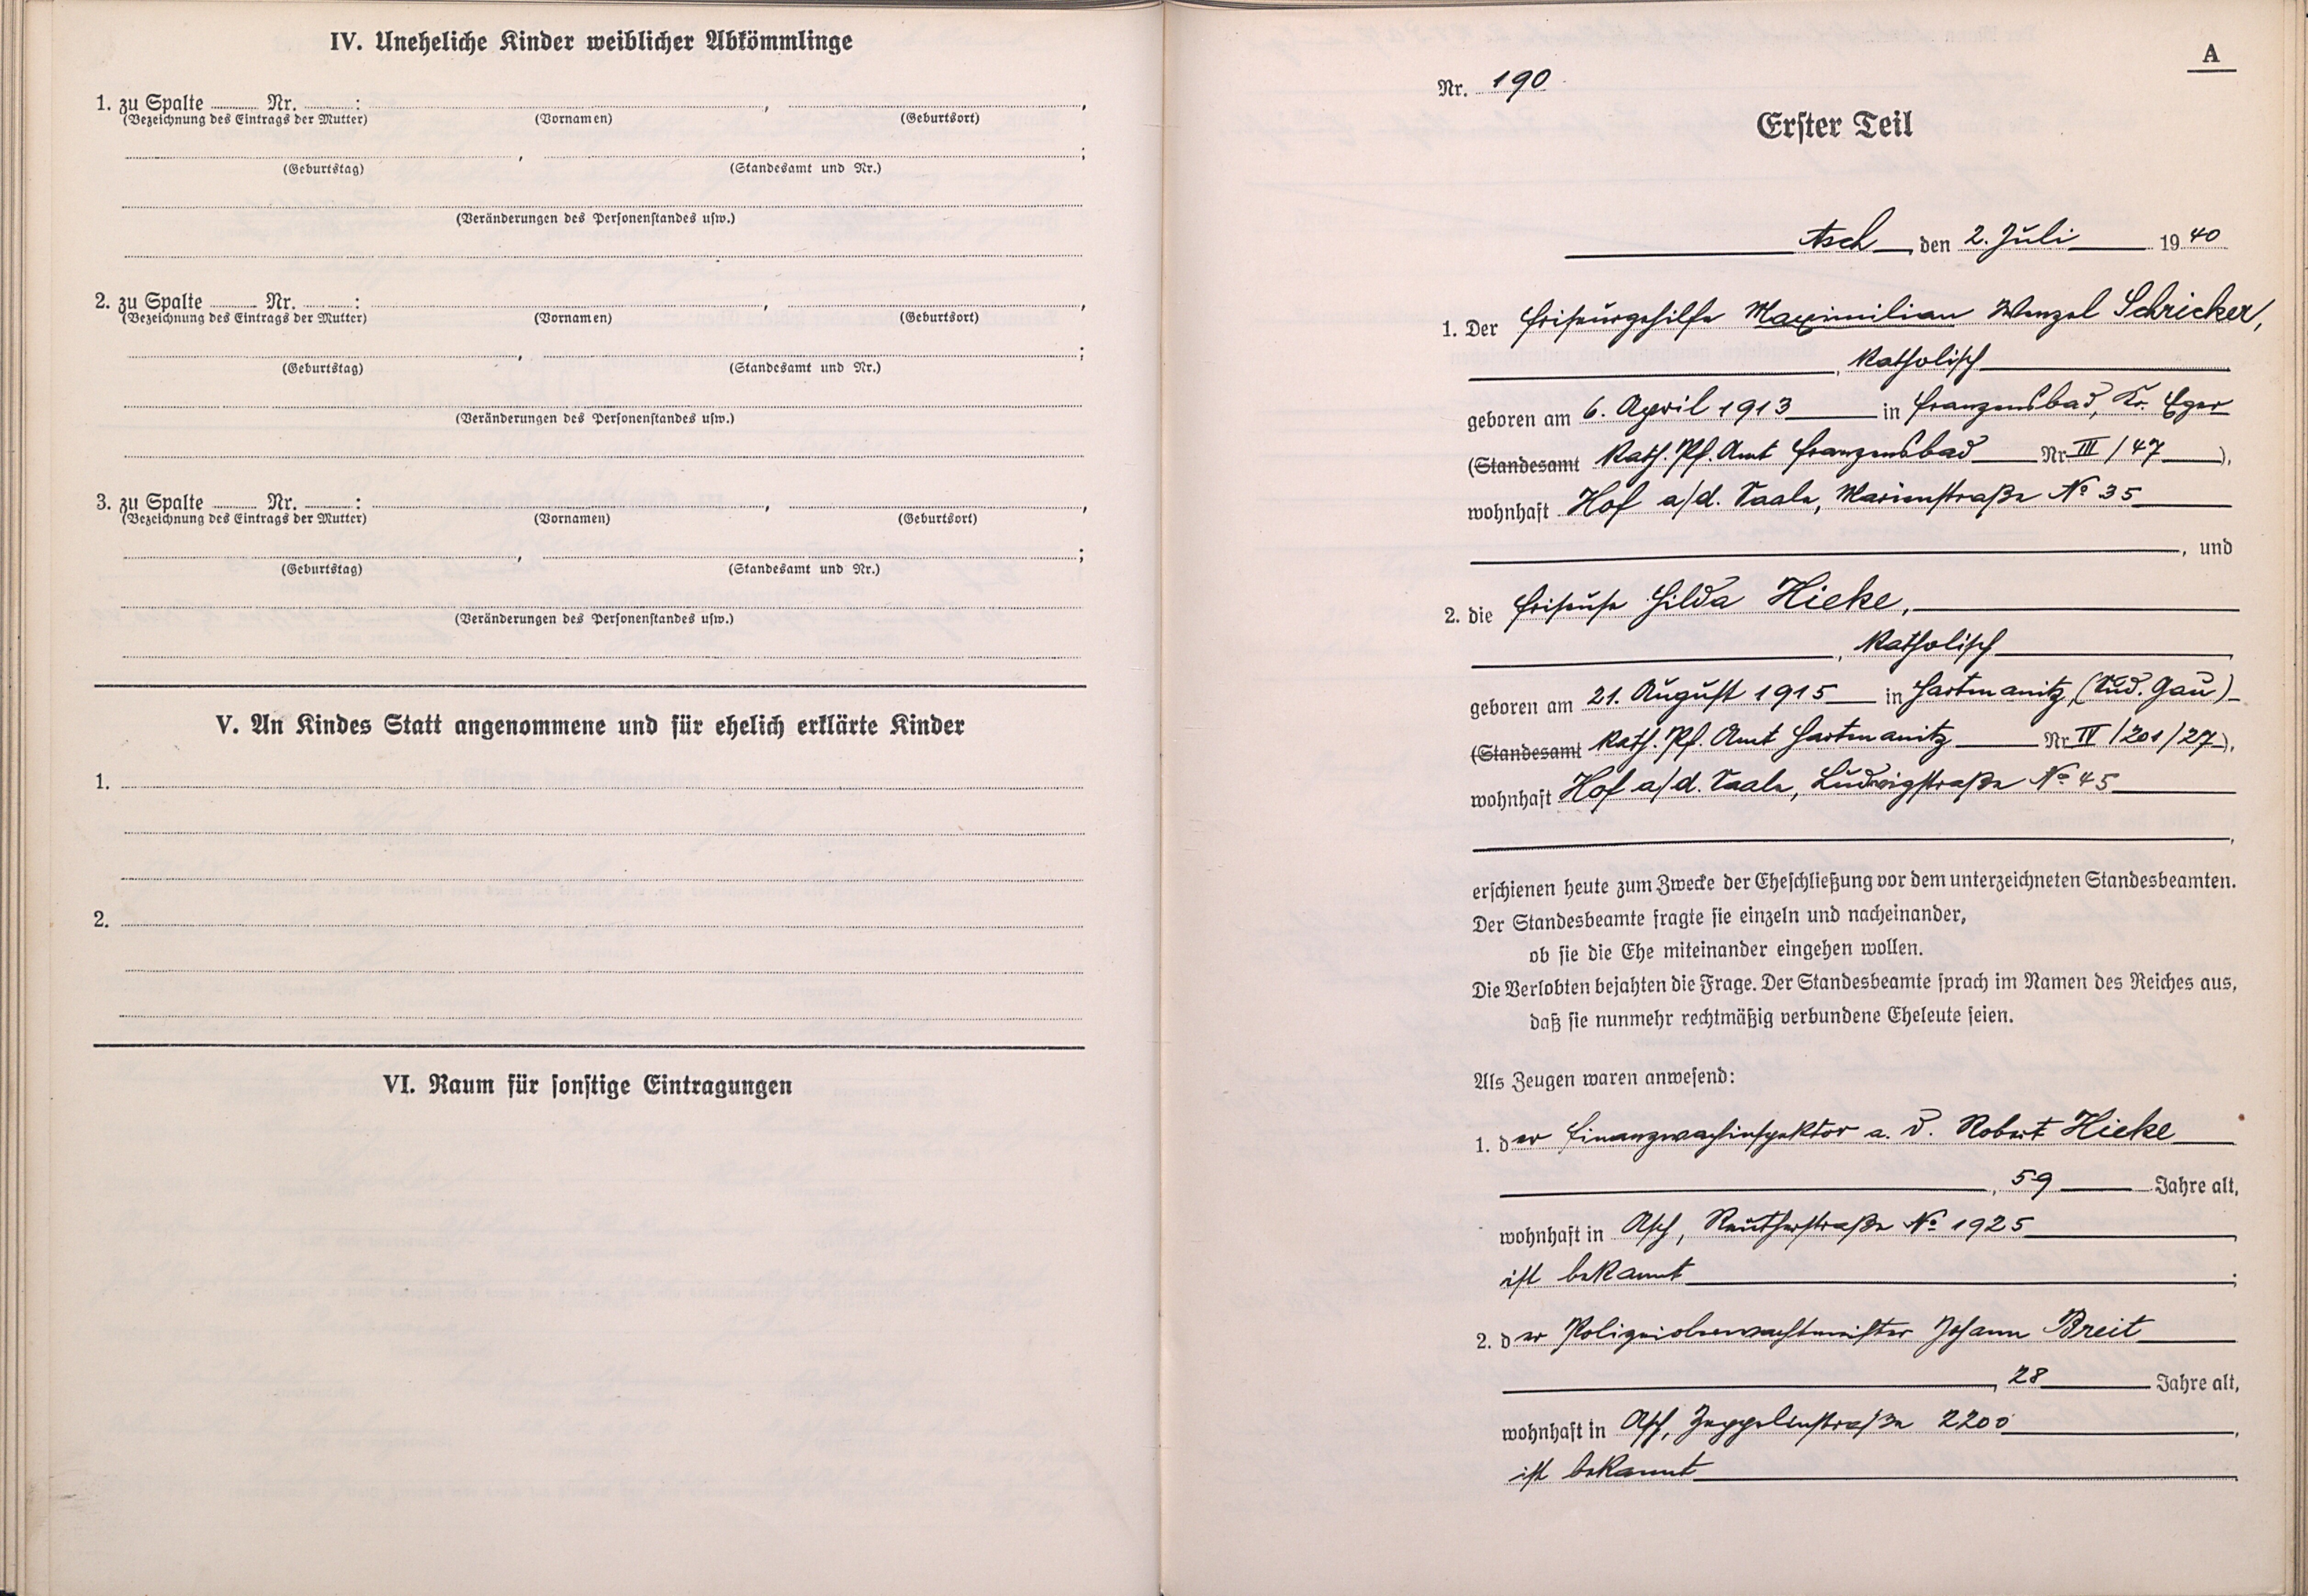 IV. Uneheliche Kinder weiblicher Abkömmlinge
1. zu Spalte ........ Nr. ........: ........, ........,
(Bezeichnung des Eintrags der Mutter) (Vornamen) (Geburtsort)
........, ........;
(Geburtstag) (Standesamt und Nr.)
(Veränderungen des Personenstandes usw.)
2. zu Spalte ........ Nr. ........: ........, ........,
(Bezeichnung des Eintrags der Mutter) (Vornamen) (Geburtsort)
........, ........;
(Geburtstag) (Standesamt und Nr.)
(Veränderungen des Personenstandes usw.)
3. zu Spalte ........ Nr. ........: ........, ........,
(Bezeichnung des Eintrags der Mutter) (Vornamen) (Geburtsort)
........, ........;
(Geburtstag) (Standesamt und Nr.)
(Veränderungen des Personenstandes usw.)
V. An Kindes Statt angenommene und für ehelich erklärte Kinder
1.
2.
VI. Raum für sonstige Eintragungen
A
Nr. 190
Erster Teil
Asch, den 2. Juli 1940
1. Der Friseurgehilfe Maximilian Wenzel Schricker,
, katholisch
geboren am 6. April 1913 in Franzensbad, Kr. Eger
(Standesamt Kath. Pf. Amt Franzensbad Nr. III/47),
wohnhaft Hof a/d. Saale, Marienstraße No 35
, und
2. die Friseuse Hilda Hieke,
, katholisch
geboren am 21. August 1915 in Hartmanitz, (Sud. Gau)
(Standesamt Kath. Pf. Amt Hartmanitz Nr. IV/201/27),
wohnhaft Hof a/d. Saale, Ludwigstraße No 45
,
erschienen heute zum Zwecke der Eheschließung vor dem unterzeichneten Standesbeamten.
Der Standesbeamte fragte sie einzeln und nacheinander,
ob sie die Ehe miteinander eingehen wollen.
Die Verlobten bejahten die Frage. Der Standesbeamte sprach im Namen des Reiches aus,
daß sie nunmehr rechtmäßig verbundene Eheleute seien.
Als Zeugen waren anwesend:
1. der Finanzwachinspektor a. D. Robert Hieke
, 59 Jahre alt,
wohnhaft in Asch, Reutherstraße No 1925,
ist bekannt;
2. der Polizeioberwachtmeister Johann Breit
, 28 Jahre alt,
wohnhaft in Asch, Zeppelinstraße 2200,
ist bekannt